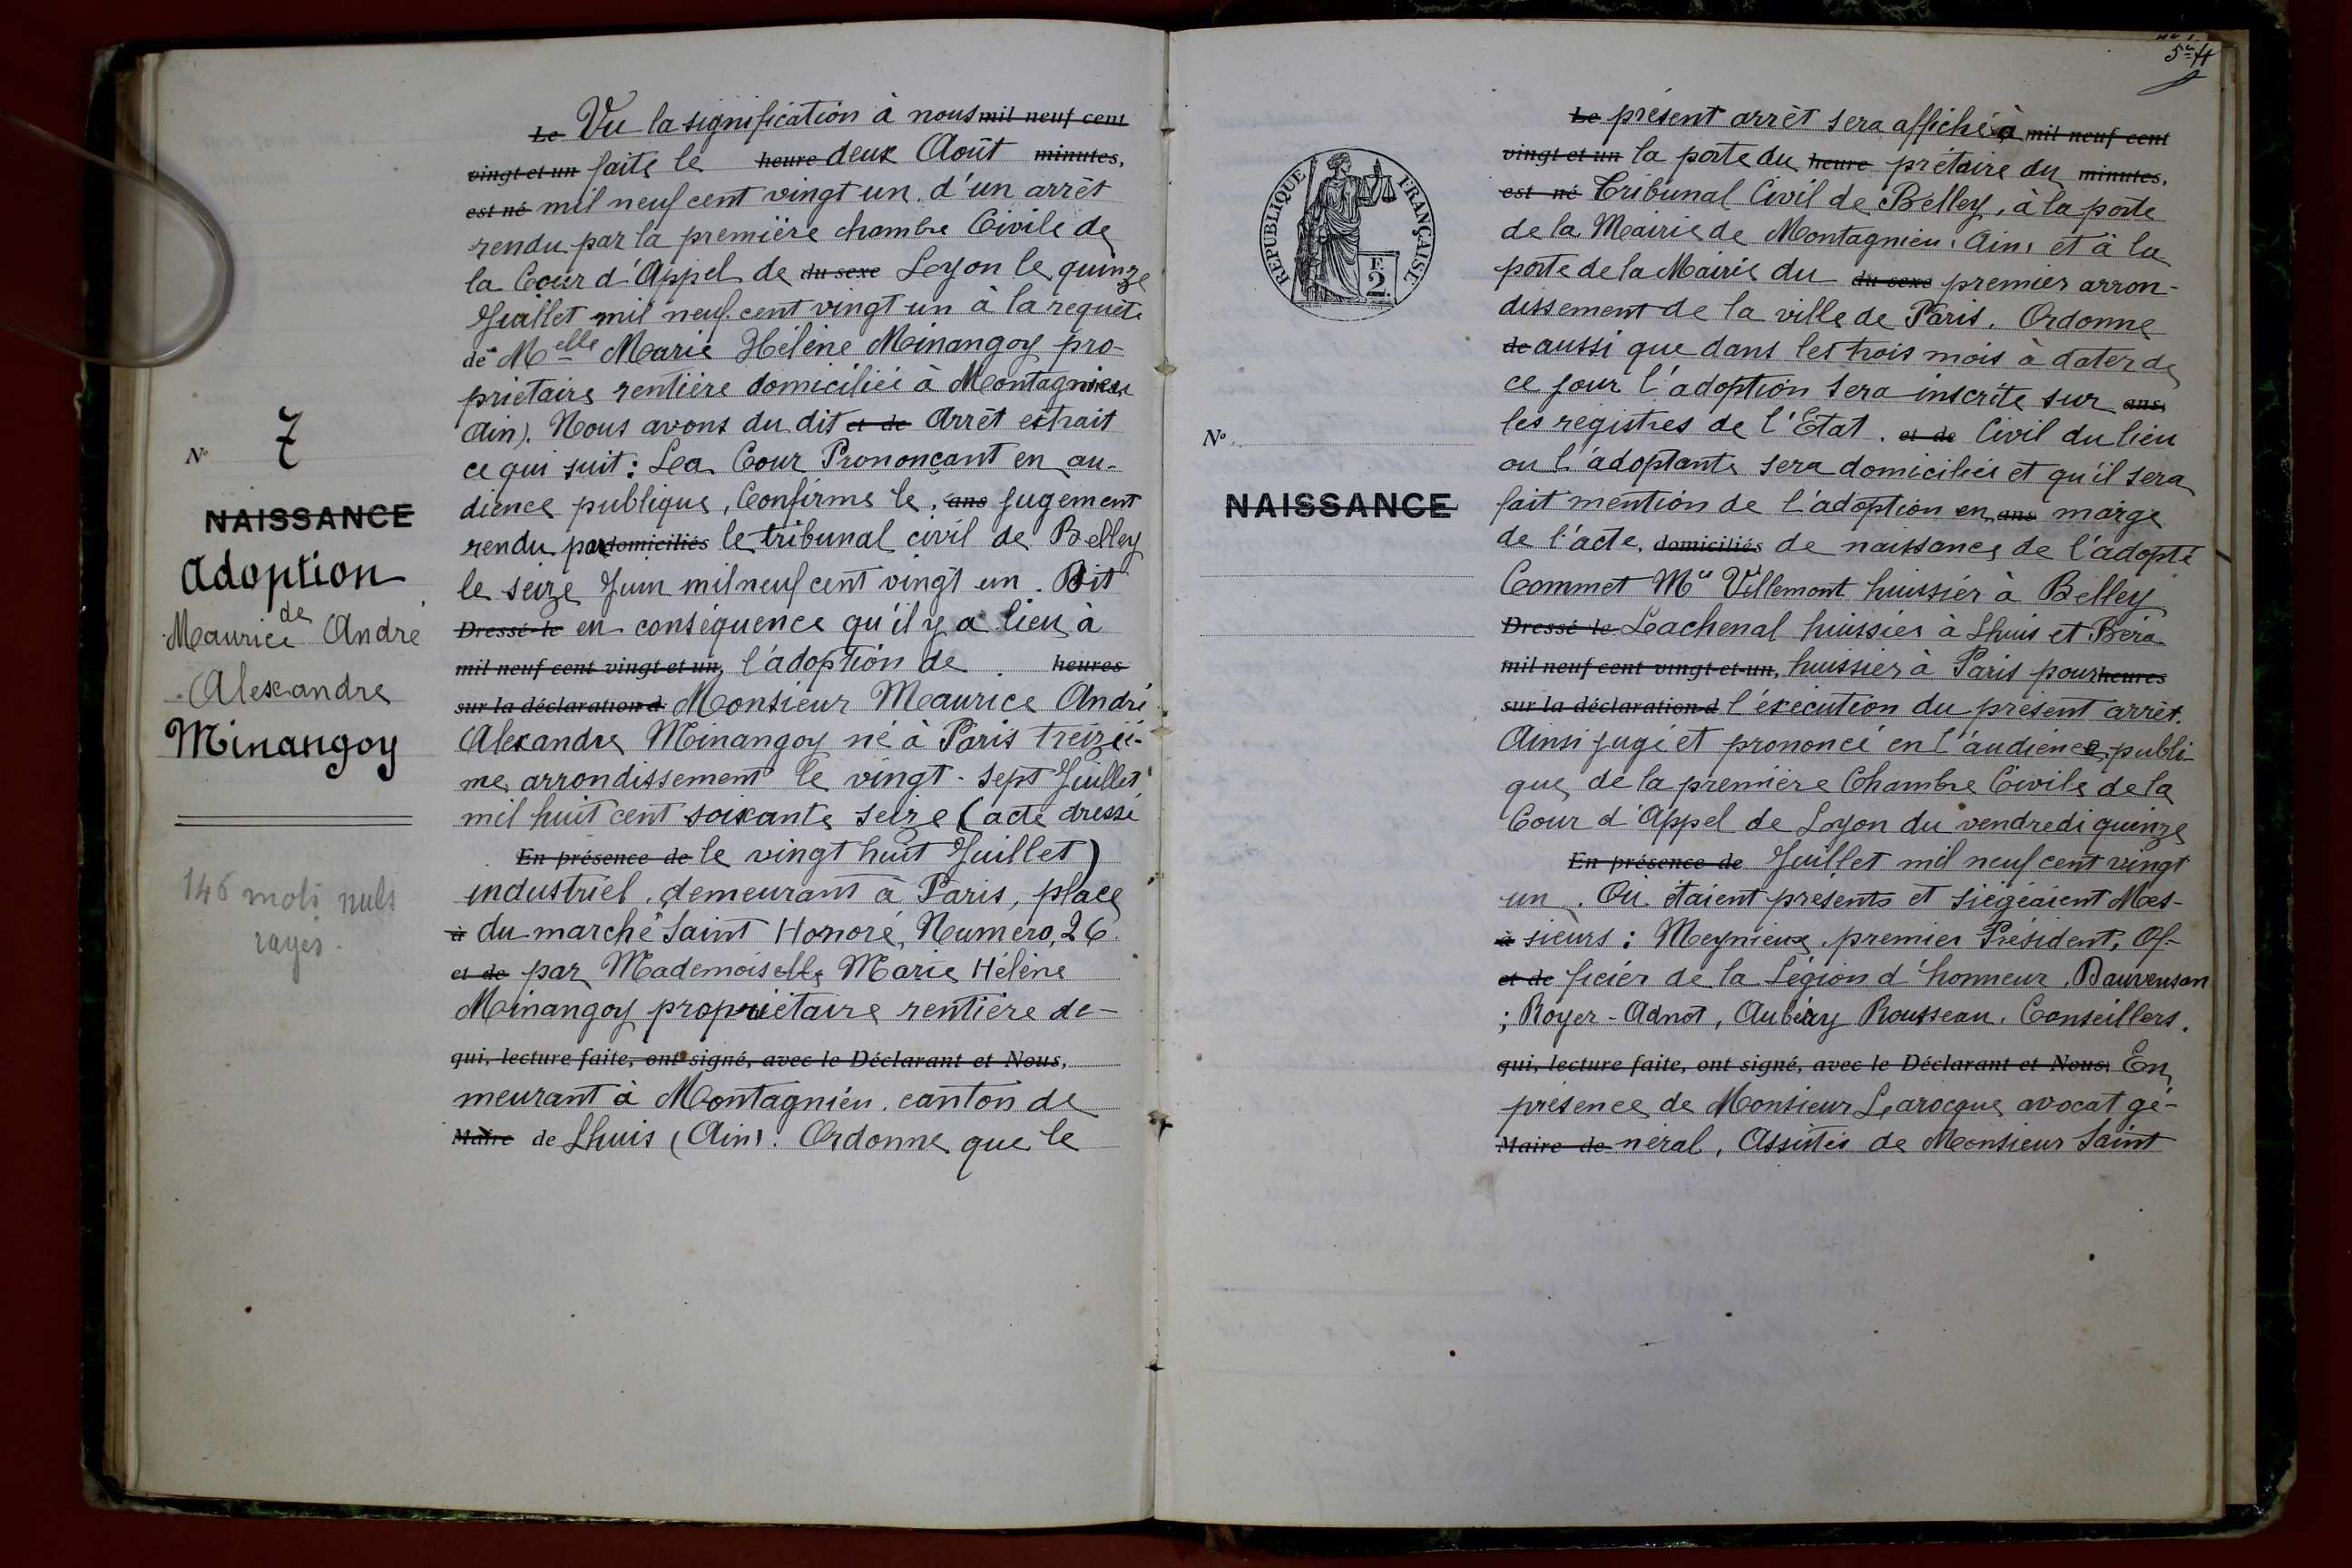 N° 7
NAISSANCE
Adoption
de
Maurice André
Alexandre
Minangoy
146 mots nuls
rayés.
Le Vu la signification à nous mil neuf cent
vingt et un faite le heure deux Août minutes,
est né mil neuf cent vingt un. d'un arrêt
rendu par la première chambre Civile de
la Cour d'Appel de du sexe Lyon le quinze
Juillet mil neuf cent vingt un à la requête
de Melle Marie Hélène Minangoy pro-
priétaire rentière domiciliée à Montagnieu
Ain). Nous avons du dit et de Arrêt extrait
ce qui suit : La Cour Prononçant en au-
dience publique, Confirme le, ans jugement
rendu par domiciliés le tribunal civil de Belley
le seize Juin mil neuf cent vingt un. Dit
Dressé le en conséquence qu'il y a lieu à
mil neuf cent vingt et un, l'adoption de heures
sur la déclaration d Monsieur Maurice André
Alexandre Minangoy né à Paris treiziè-
me arrondissement le vingt-sept Juillet
mil huit cent soixante seize (acte dressé
En présence de le vingt huit Juillet)
industriel, demeurant à Paris, place
à du marché Saint Honoré, Numéro, 26.
et de par Mademoiselle Marie Hélène
Minangoy propriétaire rentière de-
qui, lecture faite, ont signé, avec le Déclarant et Nous,
meurant à Montagnieu. canton de
Maire de Lhuis (Ain). Ordonne que le
5e H
RÉPUBLIQUE FRANÇAISE
F
2
N°
NAISSANCE
Le présent arrêt sera affiché à mil neuf cent
vingt et un la porte du heure prétoire du minutes,
est né Tribunal Civil de Belley, à la porte
de la Mairie de Montagnieu (Ain) et à la
porte de la Mairie du du sexe premier arron-
dissement de la ville de Paris. Ordonne
de aussi que dans les trois mois à dater de
ce jour l'adoption sera inscrite sur ans,
les registres de l'Etat. et de Civil du lieu
ou l'adoptante sera domiciliée et qu'il sera
fait mention de l'adoption en ans marge
de l'acte, domiciliés de naissance de l'adopté
Commet Villemont huissier à Belley
Dressé le Lachenal huissier à Lhuis et Béra
mil neuf cent vingt et un, huissier à Paris pour heures
sur la déclaration d l'éxécution du présent arrêt.
Ainsi jugé et prononcé en l'audience publi-
que de la première Chambre Civile de la
Cour d'Appel de Lyon du vendredi quinze
En présence de Juillet mil neuf cent vingt
un. Où étaient présents et siègeaient Mes-
à sieurs : Meynieux, premier Président, Of-
et de ficier de la Légion d'honneur, Bauvenson
; Royer-Adnot, Aubéry Rousseau. Conseillers.
qui, lecture faite, ont signé, avec le Déclarant et Nous, En
présence de Monsieur Larocque avocat gé-
Maire de néral, Assistés de Monsieur Saint